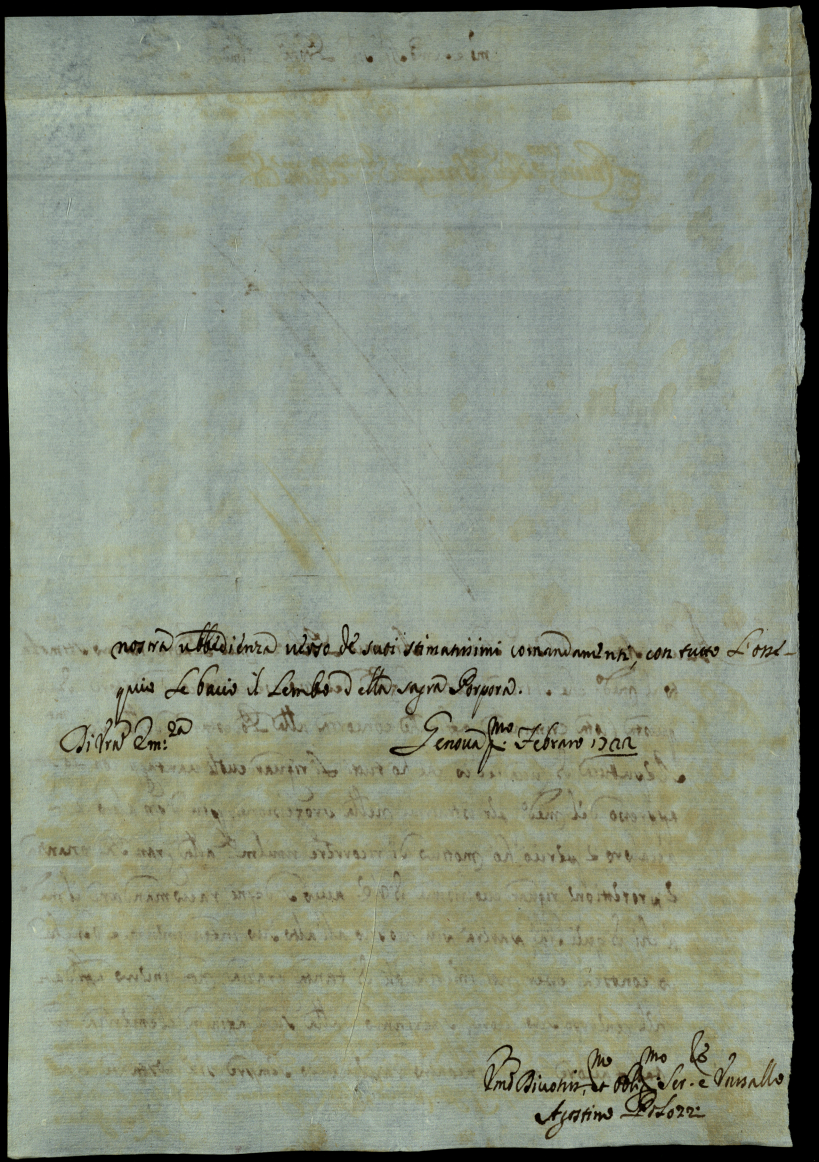 nostra ubbedienza verso de suoi stimatissimi comandamenti, con tutto L'osse-
quio Le bacio il Lembo della sagra Porpora.
Di Vra Em:za Genova p:mo Febraro 1722
Vmo Divotis:mo et obblig:mo Ser.e e Vassallo
Agostino